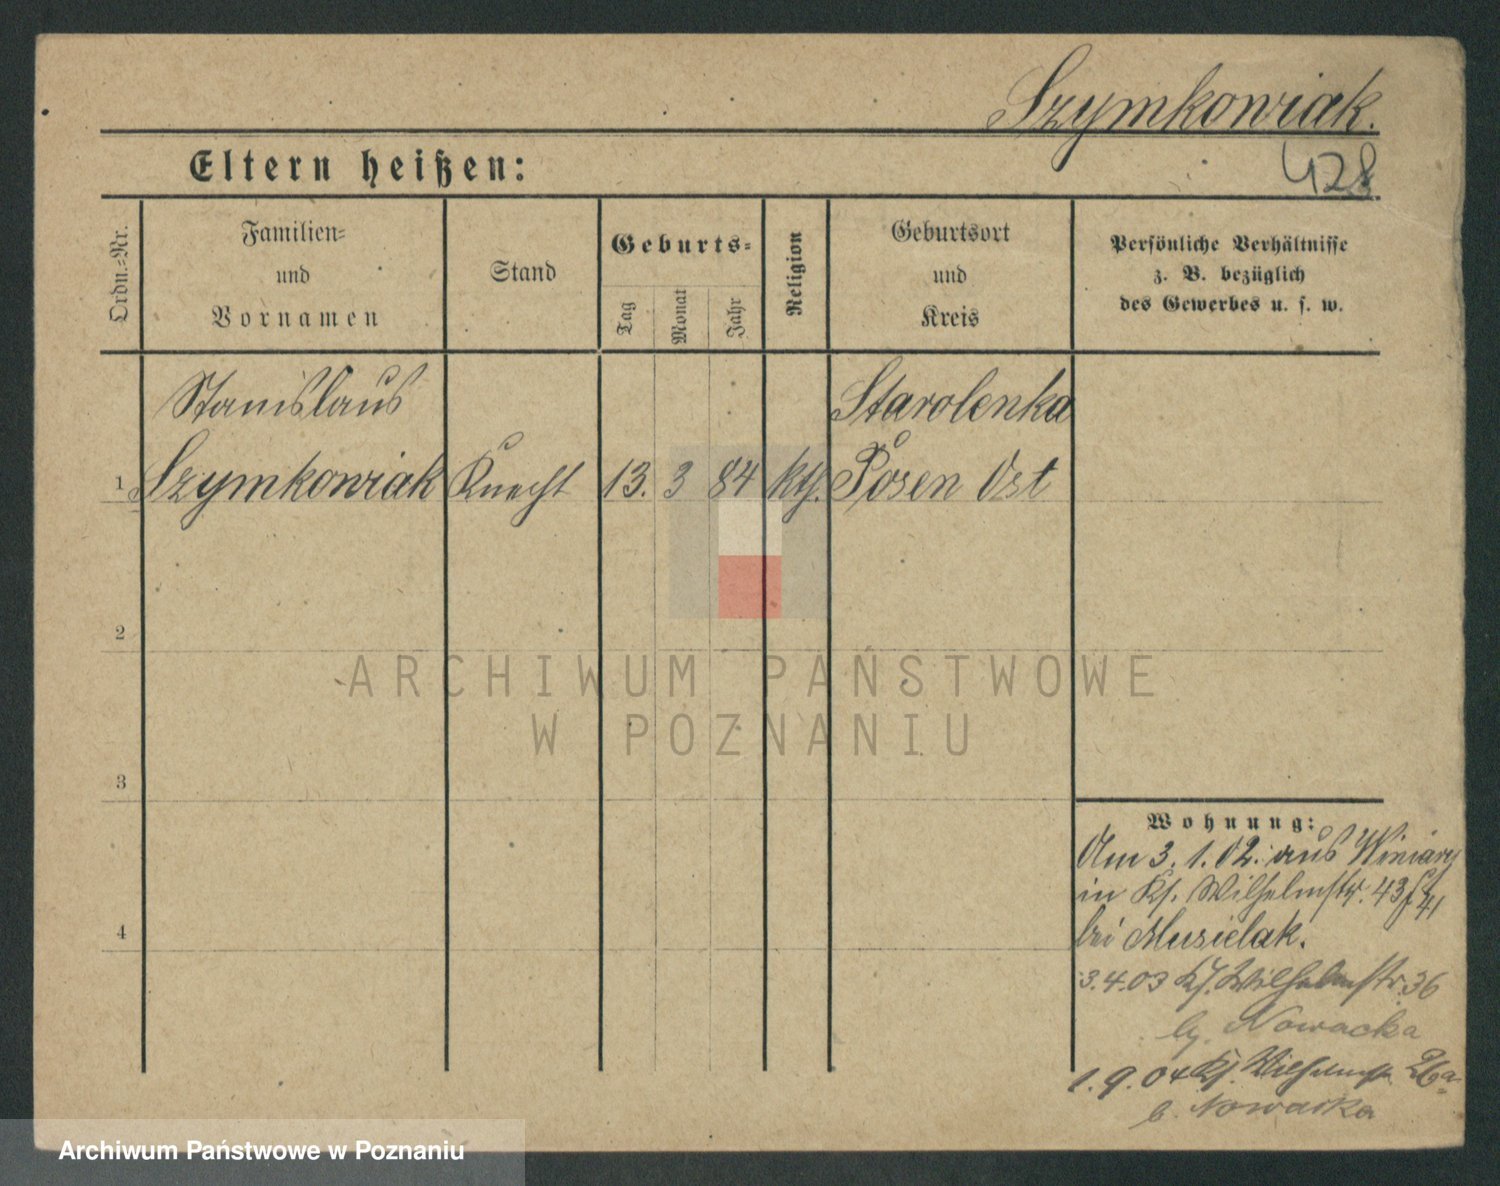 Szymkowiak.
428
Eltern heißen:
Ordn.-Nr.
Familien-
und
Vornamen
Stand
Geburts-
Tag
Monat
Jahr
Religion
Geburtsort
und
Kreis
Persönliche Verhältnisse
z. B. bezüglich
des Gewerbes u. s. w.
Stanislaus
Starolenka
1 Szymkowiak Knecht 13. 3 84 kth. Posen Ost
2
3
4
ARCHIWUM PAŃSTWOWE
W POZNANIU
Wohnung:
Am 3.1.02. aus Winiary
in Ks. Wilhelmstr. 43/41
bei Musielak.
3.4.03 Ks. Wilhelmstr. 36
Nowacka
1.9.04 Ks. Wilhelmstr 26a
b. Nowacka
Archiwum Państwowe w Poznaniu